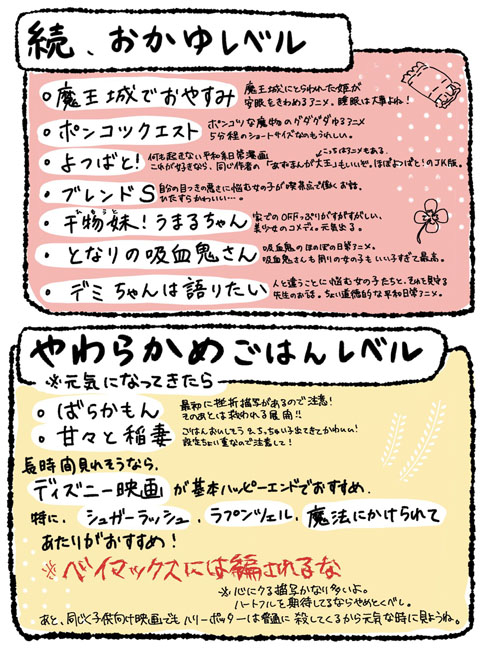 続、おかゆレベル
○魔王城でおやすみ
魔王城にとらわれた姫が
安眠をきわめるアニメ。睡眠は大事よね!
○ポンコツクエスト
ポンコツな魔物のグダグダゆるアニメ
5分程のショートサイズなのもうれしい。
○よつばと!
何も起きない平和な日常漫画
こっちはアニメもある。
これが好きなら、同じ作者の「あずまんが大王」もいいぞ。ほぼよつばと!のJK版。
○ブレンドS
自分の目つきの悪さに悩む女の子が喫茶店で働くお話。
ひたすらかわいい…。
○干物妹!うまるちゃん
うと
家でのOFFっぷりがすがすがしい、
美少女のコメディ。元気出る。
○となりの吸血鬼さん
吸血鬼のほのぼの日常アニメ。
吸血鬼さんも周りの女の子もいい子すぎて最高。
○デミちゃんは語りたい
人と違うことに悩む女の子たちと、それを見守る
先生のお話。ちょい道徳的な平和日常アニメ。
やわらかめごはんレベル
※元気になってきたら
○ばらかもん
最初に挫折描写があるので注意!
そのあとは救われる展開!!
○甘々と稲妻
ごはんおいしそう&ちっちゃい子出てきてかわいい!
設定ちょい重なので注意して!
長時間見れそうなら、
ディズニー映画が基本ハッピーエンドでおすすめ.
特に、シュガーラッシュ、ラプンツェル、魔法にかけられて
あたりがおすすめ!
※ベイマックスには騙されるな
※心にクる描写かなり多いよ。
ハートフルを期待してるならやめとくべし。
あと、同じく子供向け映画でもハリーポッターは普通に殺してくるから元気な時に見ようね。